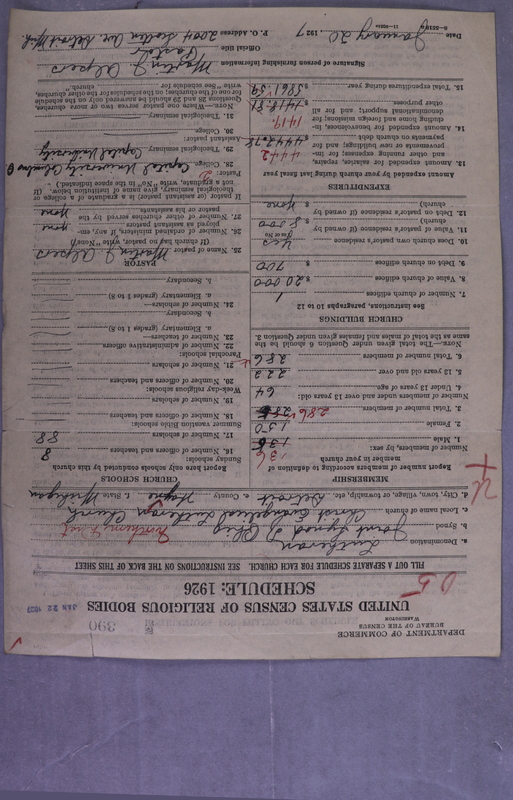 DEPARTMENT OF COMMERCE
BUREAU OF THE CENSUS
WASHINGTON
390
UNITED STATES CENSUS OF RELIGIOUS BODIES
JAN 22 1927
SCHEDULE: 1926
FILL OUT A SEPARATE SCHEDULE FOR EACH CHURCH. SEE INSTRUCTIONS ON THE BACK OF THIS SHEET
a. Denomination Lutheran
b. Synod Joint Synod of Ohio Northern Dist
c. Local name of church Christ Evangelical Lutheran Church
d. City, town, village, or township, etc. Detroit e. County Wayne f. State Michigan
MEMBERSHIP
Report number of members according to definition of member in your church
Number of members, by sex:
1. Male 136
2. Female 150
3. Total number of members 286
Number of members under and over 13 years old:
4. Under 13 years of age 64
5. 13 years old and over 222
6. Total number of members 286
NOTE.—The total given under Question 6 should be the same as the total of males and females given under Question 3.
CHURCH BUILDINGS
See instructions, paragraphs 10 to 12
7. Number of church edifices 1
8. Value of church edifices $ 20 000
9. Debt on church edifices $ 700
10. Does church own pastor's residence yes
(Yes or No)
11. Value of pastor's residence (if owned by church) $ 8 000
12. Debt on pastor's residence (if owned by church) $ none
EXPENDITURES
Amount expended by your church during last fiscal year
13. Amount expended for salaries, repairs, and other running expenses; for improvements or new building; and for payments on church debt $ 4442.78
14. Amount expended for benevolences, including home and foreign missions; for denominational support; and for all other purposes $ 1418.81
15. Total expenditures during year $ 5861.59
CHURCH SCHOOLS
Report here only schools conducted by this church
Sunday schools:
16. Number of officers and teachers 8
17. Number of scholars 88
Summer vacation Bible schools:
18. Number of officers and teachers
19. Number of scholars
Week-day religious schools:
20. Number of officers and teachers
21. Number of scholars
Parochial schools:
22. Number of administrative officers
23. Number of teachers—
a. Elementary (grades 1 to 8)
b. Secondary
24. Number of scholars—
a. Elementary (grades 1 to 8)
b. Secondary
PASTOR
25. Name of pastor Martin J Alpers
(If church has no pastor, write "None")
26. Number of ordained ministers, if any, employed as assistant pastors none
27. Number of other churches served by the pastor or his assistants none
If pastor or assistant pastor is a graduate of a college or theological seminary, give name of institution below. (If not a graduate, write "No" in the space indicated.)
Pastor:
28. College Capital University Columbus O
29. Theological seminary Capital University
Assistant pastor:
30. College
31. Theological seminary
NOTE.—Where one pastor serves two or more churches, Questions 28 and 29 should be answered only on the schedule for one of the churches; on the schedules for the other churches, write "See schedule for church."
Signature of person furnishing information Martin J Alpers
Official title Pastor
Date January 20 1927 P. O. Address 2004 Ave Detroit Mich.